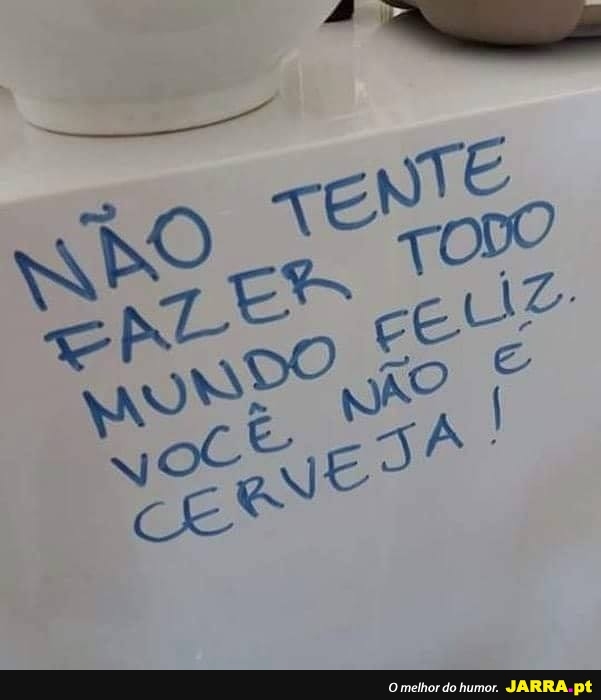 NÃO TENTE
FAZER TODO
MUNDO FELIZ.
VOCÊ NÃO É
CERVEJA!
O melhor do humor. JARRA.pt